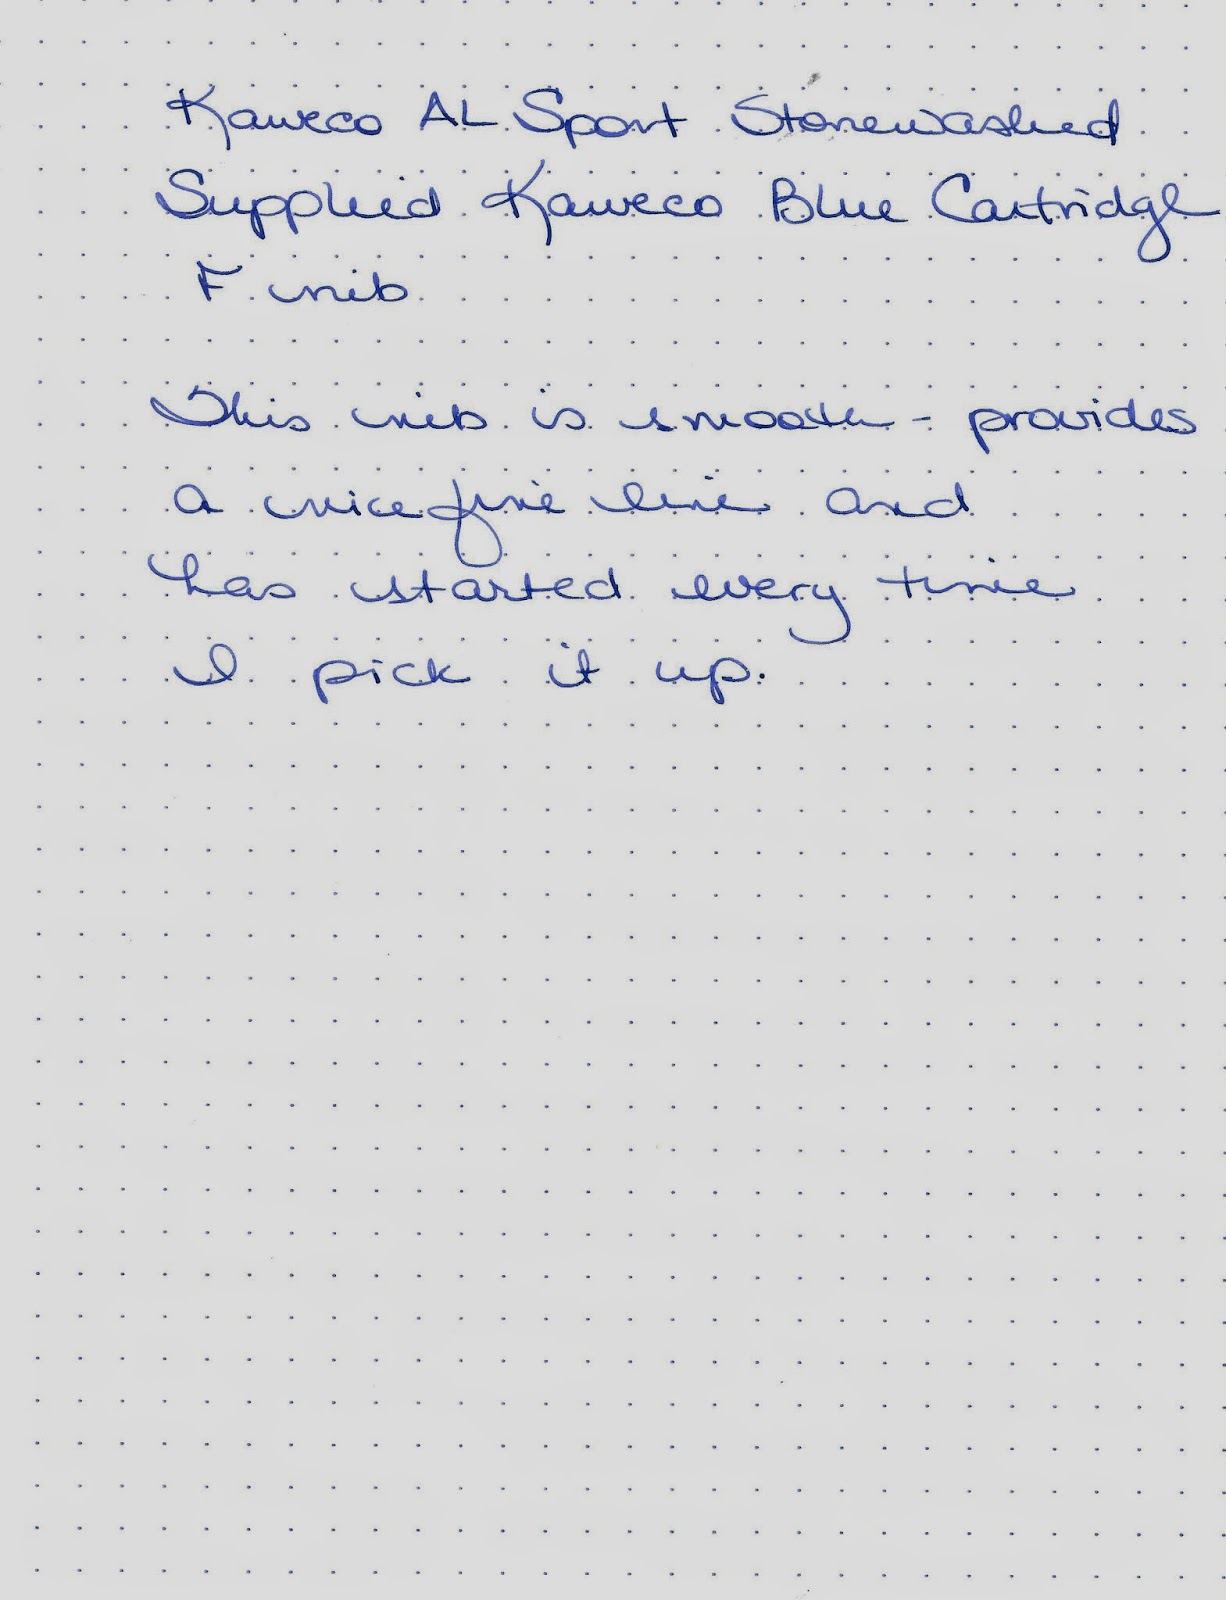 Kaweco AL Sport Stonewashed
Supplied Kaweco Blue Cartridge
F nib
This nib is smooth - provides
a nice fine line and
has started every time
I pick it up.